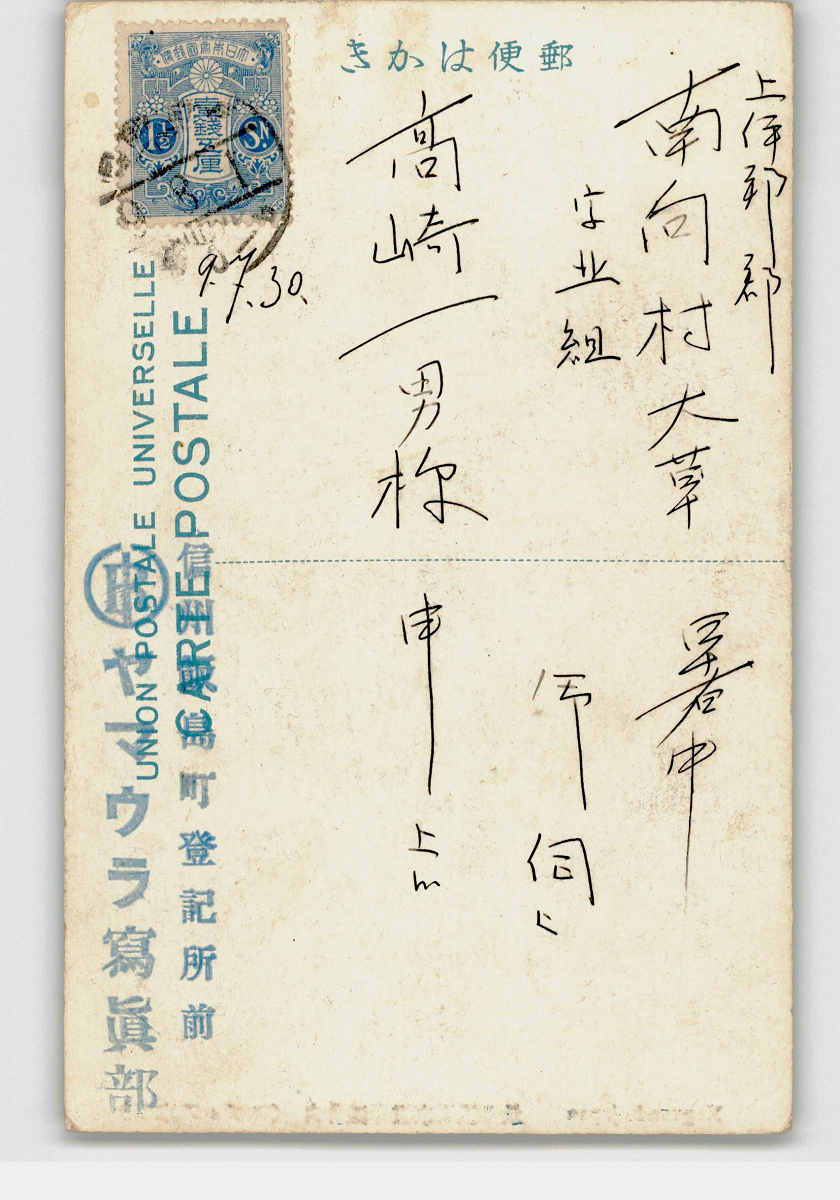 郵便はかき
大日本帝國郵便
壹錢五厘
1½ Sn.
上伊那郡
南向村大草
字北組
高崎一男様
9.7.30.
暑中
御伺上
申上
UNION POSTALE UNIVERSELLE
CARTE POSTALE
信州飯島町登記所前
ヤマウラ寫眞部